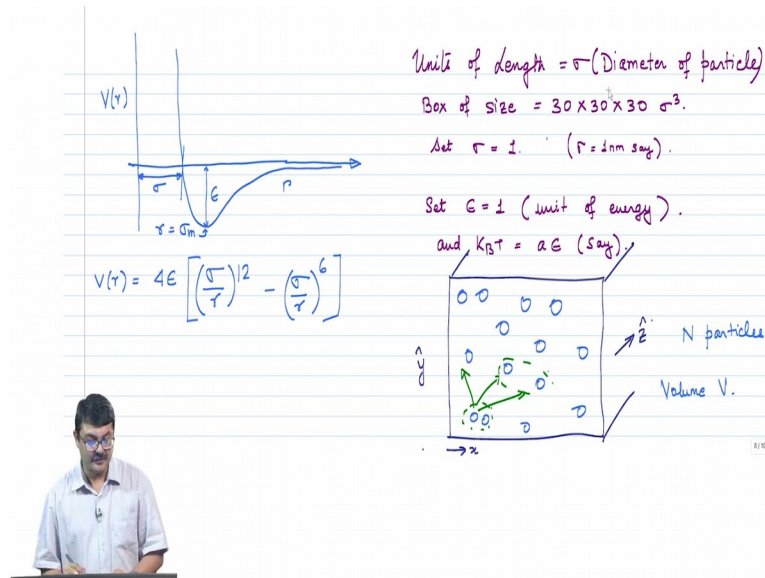 V(r)
σ
ϵ
r
r = σm
V(r) = 4ϵ [ (σ/r)^12 - (σ/r)^6 ]
Units of Length = σ (Diameter of particle)
Box of size = 30 × 30 × 30 σ^3.
Set σ = 1. (σ = 1nm say).
Set ϵ = 1 (unit of energy).
and KBT = aϵ (say).
ŷ
ẑ
N particles
Volume V.
→ x